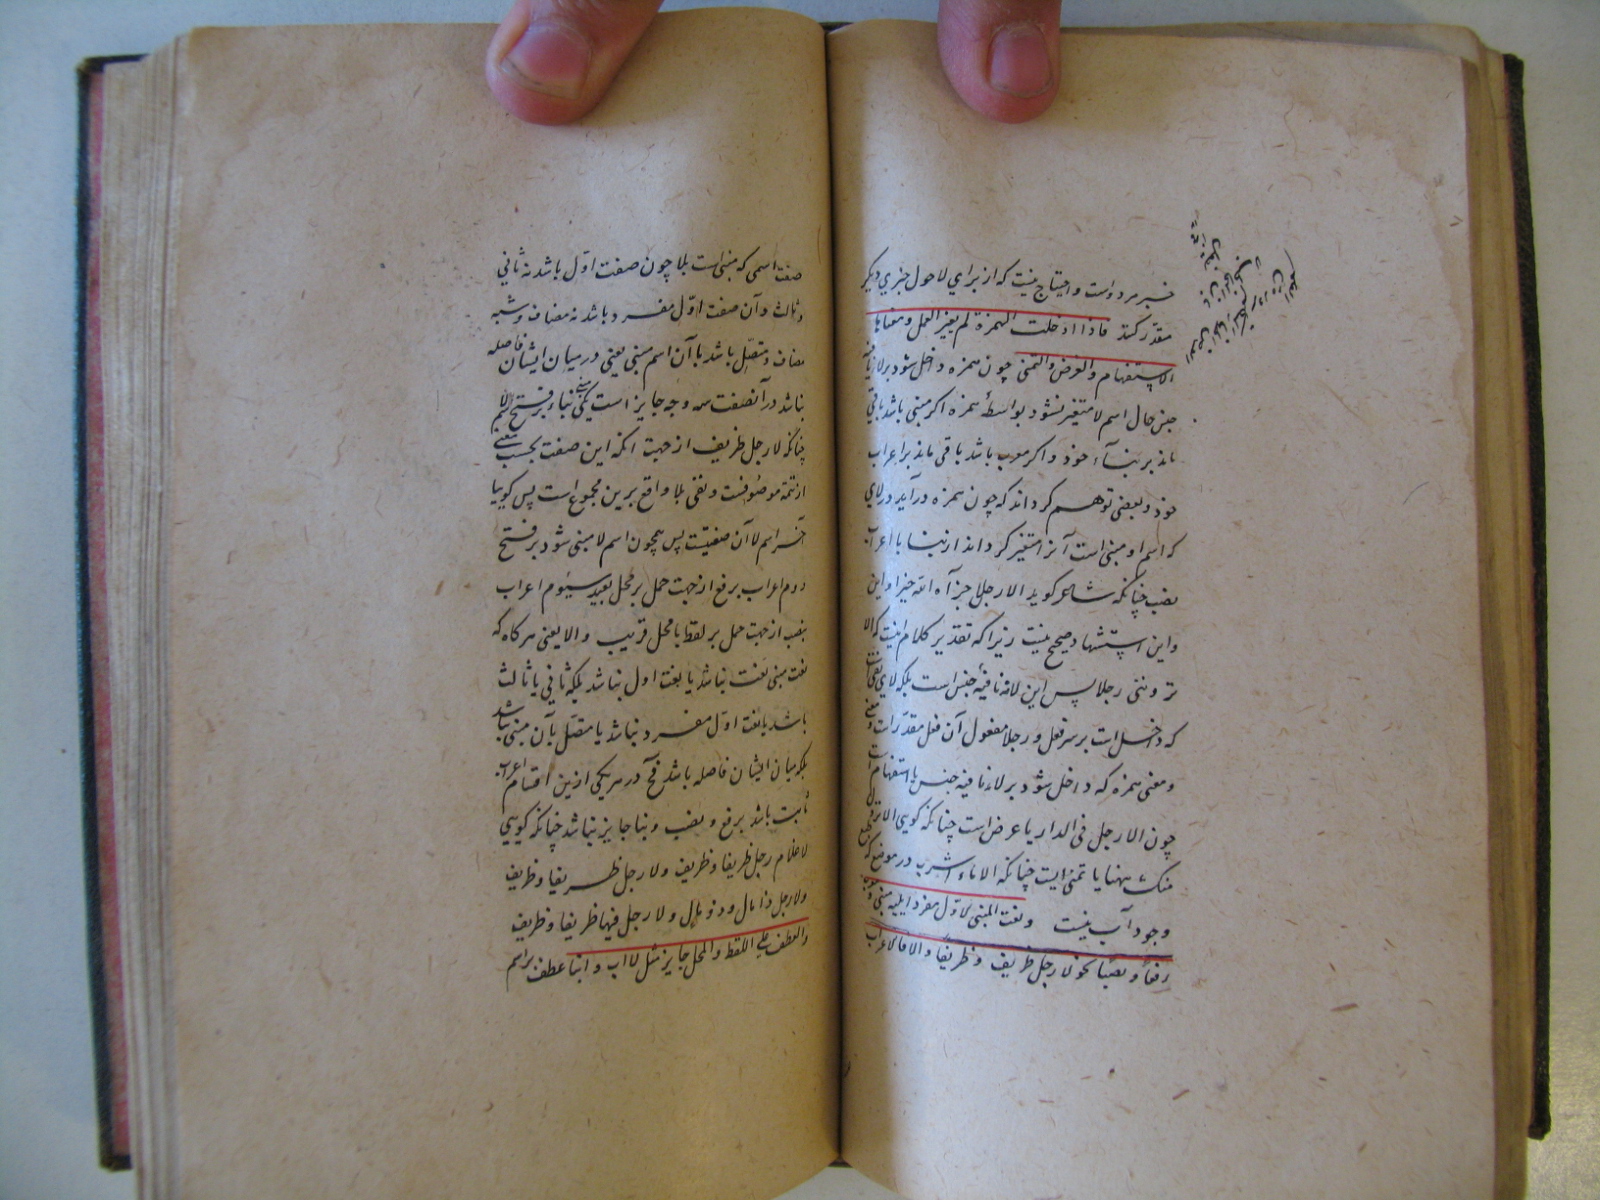 خبر مردو است و احتیاج نیست که از برای لا حول خبری دیگر
مقدر کنند فاذا ادخلت الهمزة لم یغیر العمل و معناها
الاستفهام والعرض والتمنی چون همزه داخل شود بر لا نافیه
جنس حال اسم لا متغیر نشود بواسطهٔ همزه اگر مبنی باشد باقی
ماند بر بناء خود و اگر معرب باشد باقی ماند بر اعراب
خود و بعضی توهم کرده‌اند که چون همزه درآید در لای
که اسم او مبنی است آنرا متغیر گرداند از بنا با اعراب
نصب چنانکه شاعر گوید الا رجلا جزاه الله خیرا و این
و این استشهاد صحیح نیست زیرا که تقدیر کلام اینست که الا
تروننی رجلا پس این لا نه نافیهٔ جنس است بلکه لای نفی
که داخل است بر سر فعل و رجلا مفعول آن فعل مقدر است
و معنی همزه که داخل شود بر لاء نافیه جنس یا استفهام است
چون الا رجل فی الدار یا عرض است چنانکه گویی الا نزول
منک بهنا یا تمنی است چنانکه الا ماء اشرب در موضع که
وجود آب نیست و نعت المبنی الاول مفردا یلیه مبنی و معرب
رفعا و نصبا نحو لا رجل ظریف و ظریفا و الا فالاعراب
صفت اسمی که مبنی است بلا چون صفت اول باشد نه ثانی
و ثالث و آن صفت اول مفرد باشد نه مضاف و شبه
مضاف و متصل باشد با آن اسم مبنی یعنی در میان ایشان فاصله
نباشد در آنصفت سه وجه جایز است یکی بناء بر فتح
چنانکه لا رجل ظریف از جهت انکه این صفت بحسب معنی
از تتمه موصوفست و نفی بلا واقع برین مجموع است پس گوییا
آخر اسم لا آن صفتست پس همچون اسم لا مبنی شود بر فتح
دوم اعراب برفع از جهت حمل بر محل بعید سیوم اعراب
بنصب از جهت حمل بر لفظ یا محل قریب و الا یعنی هر گاه که
نعت مبنی نعت نباشد یا نعت اول نباشد بلکه ثانی یا ثالث
باشد یا نعت اول مفرد نباشد یا متصل بآن مبنی نباشد
بلکه میان ایشان فاصله باشد فح در هر یکی ازین اقسام اعراب
ثابت باشد برفع و نصب و بنا جایز نباشد چنانکه گویی
لا غلام رجل ظریفا و ظریف ولا رجل ظریفا و ظریف
ولا رجل ذا مال و ذو مال و لا رجل فیها ظریفا و ظریف
والعطف علی اللفظ والمحل جایز مثل لا اب و ابنا عطف بر اسم